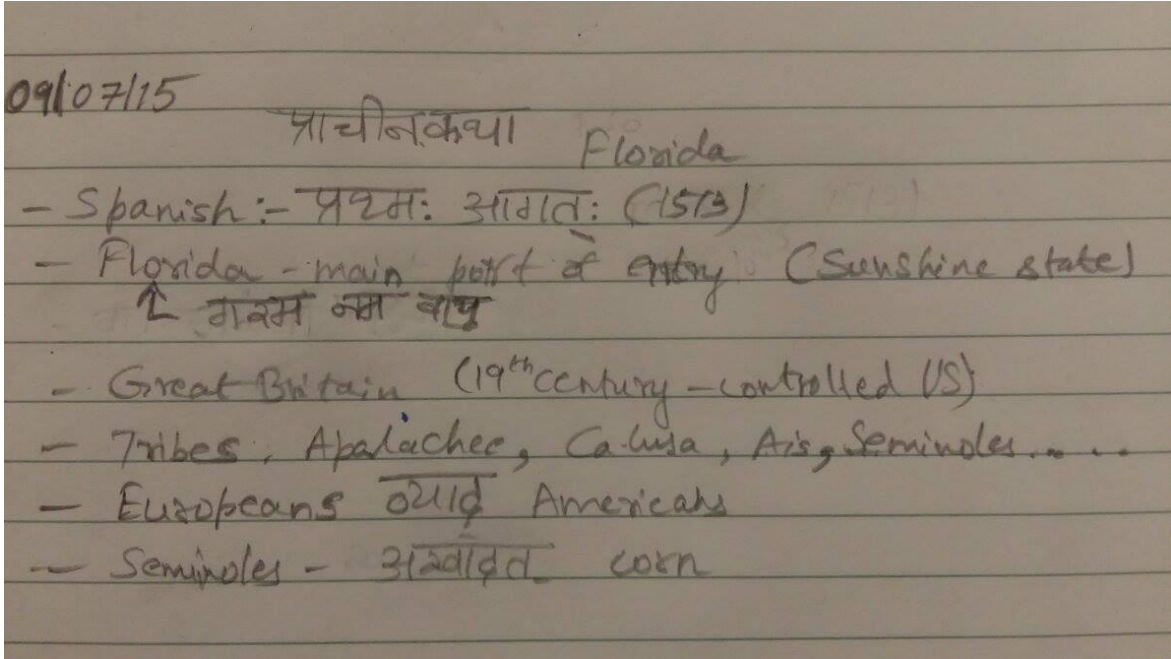 09/07/15
प्राचीनकथा Florida
- Spanish :- प्रथमः आगतः (1513)
- Florida - main port of entry (Sunshine state)
↑ गरम नम वायु
- Great Britain (19th century - controlled US)
- Tribes, Apalachee, Calusa, Ais, Seminoles.....
- Europeans Americans
- Seminoles - corn